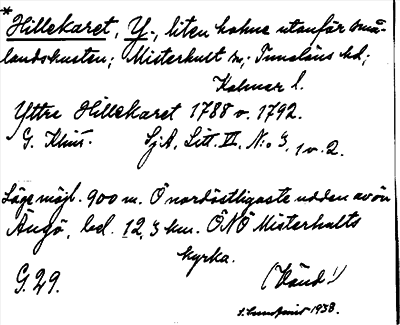 * Hillekaret, Y., liten holme utanför Små-
landskusten; Misterhult sn; Tunaläns hd;
Kalmar l.
Yttre Hillekaret 1788 o. 1792.
G. Klint. Sj.A. Litt. VI, N:o 3, 1 o. 2.
Läge möjl. 900 m. Ö nordöstligaste udden av ön
Ängö, bel. 12,3 km. ÖNÖ Misterhults
kyrka.
G. 29. (Vänd!)
1938.